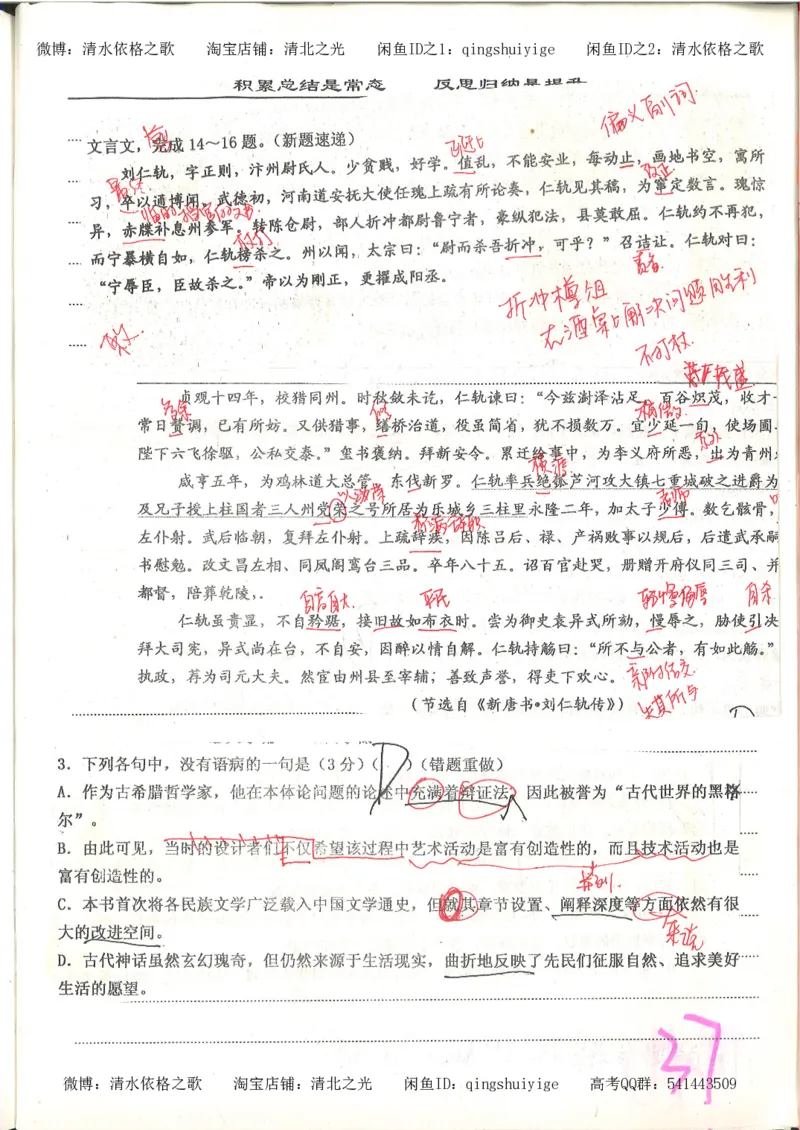 微博：清水依格之歌　淘宝店铺：清北之光　闲鱼ID之1：qingshuiyige　闲鱼ID之2：清水依格之歌
积累总结是常态　反思归纳是提升
偏义副词
文言文，完成14～16题。（新题速递）
刘仁轨，字正则，汴州尉氏人。少贫贱，好学。值乱，不能安业，每动止，画地书空，寓所
改定
最终
习，卒以通博闻。武德初，河南道安抚大使任瑰上疏有所论奏，仁轨见其稿，为窜定数言。瑰惊
异，赤牒补息州参军。转陈仓尉，部人折冲都尉鲁宁者，豪纵犯法，县莫敢屈。仁轨约不再犯，
而宁暴横自如，仁轨榜杀之。州以闻，太宗曰：“尉而杀吾折冲，可乎？”召诘让。仁轨对曰：
责备
“宁辱臣，臣故杀之。”帝以为刚正，更擢咸阳丞。
折冲樽俎
在酒桌上解决问题用胜利
不可杖
贞观十四年，校猎同州。时秋敛未讫，仁轨谏曰：“今兹澍泽沾足，百谷炽茂，收才
多余
修
稍微
常日赘调，已有所妨。又供猎事，缮桥治道，役虽简省，犹不损数万。宜少延一旬，使场圃
陛下六飞徐驱，公私交泰。”玺书褒纳。拜新安令。累迁给事中，为李义府所恶，出为青州
横渡
咸亨五年，为鸡林道大总管，东伐新罗。仁轨率兵绝瓠芦河攻大镇七重城破之进爵为
老师
及兄子授上柱国者三人州党荣之号所居为乐城乡三柱里永隆二年，加太子少傅。数乞骸骨，
以为荣
称病辞职
左仆射。武后临朝，复拜左仆射。上疏辞疾，因陈吕后、禄、产祸败事以规后，后遣武承嗣
书慰勉。改文昌左相、同凤阁鸾台三品。卒年八十五。诏百官赴哭，册赠开府仪同三司、并
都督，陪葬乾陵，.
自高自大
平民
自杀
仁轨虽贵显，不自矜踞，接旧故如布衣时。尝为御史袁异式所劾，慢辱之，胁使引决
拜大司宪，异式尚在台，不自安，因醉以情自解。仁轨持觞曰：“所不与公者，有如此觞。”
执政，荐为司元大夫。然宦由州县至宰辅；善致声誉，得吏下欢心。
（节选自《新唐书•刘仁轨传》）
3．下列各句中，没有语病的一句是（3分）（D）（错题重做）
A．作为古希腊哲学家，他在本体论问题的论述中充满着辩证法，因此被誉为“古代世界的黑格
尔”。
B．由此可见，当时的设计者们不仅希望该过程中艺术活动是富有创造性的，而且技术活动也是
富有创造性的。
C．本书首次将各民族文学广泛载入中国文学通史，但就其章节设置、阐释深度等方面依然有很
来说
大的改进空间。
D．古代神话虽然玄幻瑰奇，但仍然来源于生活现实，曲折地反映了先民们征服自然、追求美好
生活的愿望。
37
微博：清水依格之歌　淘宝店铺：清北之光　闲鱼ID：qingshuiyige　高考QQ群：541443509